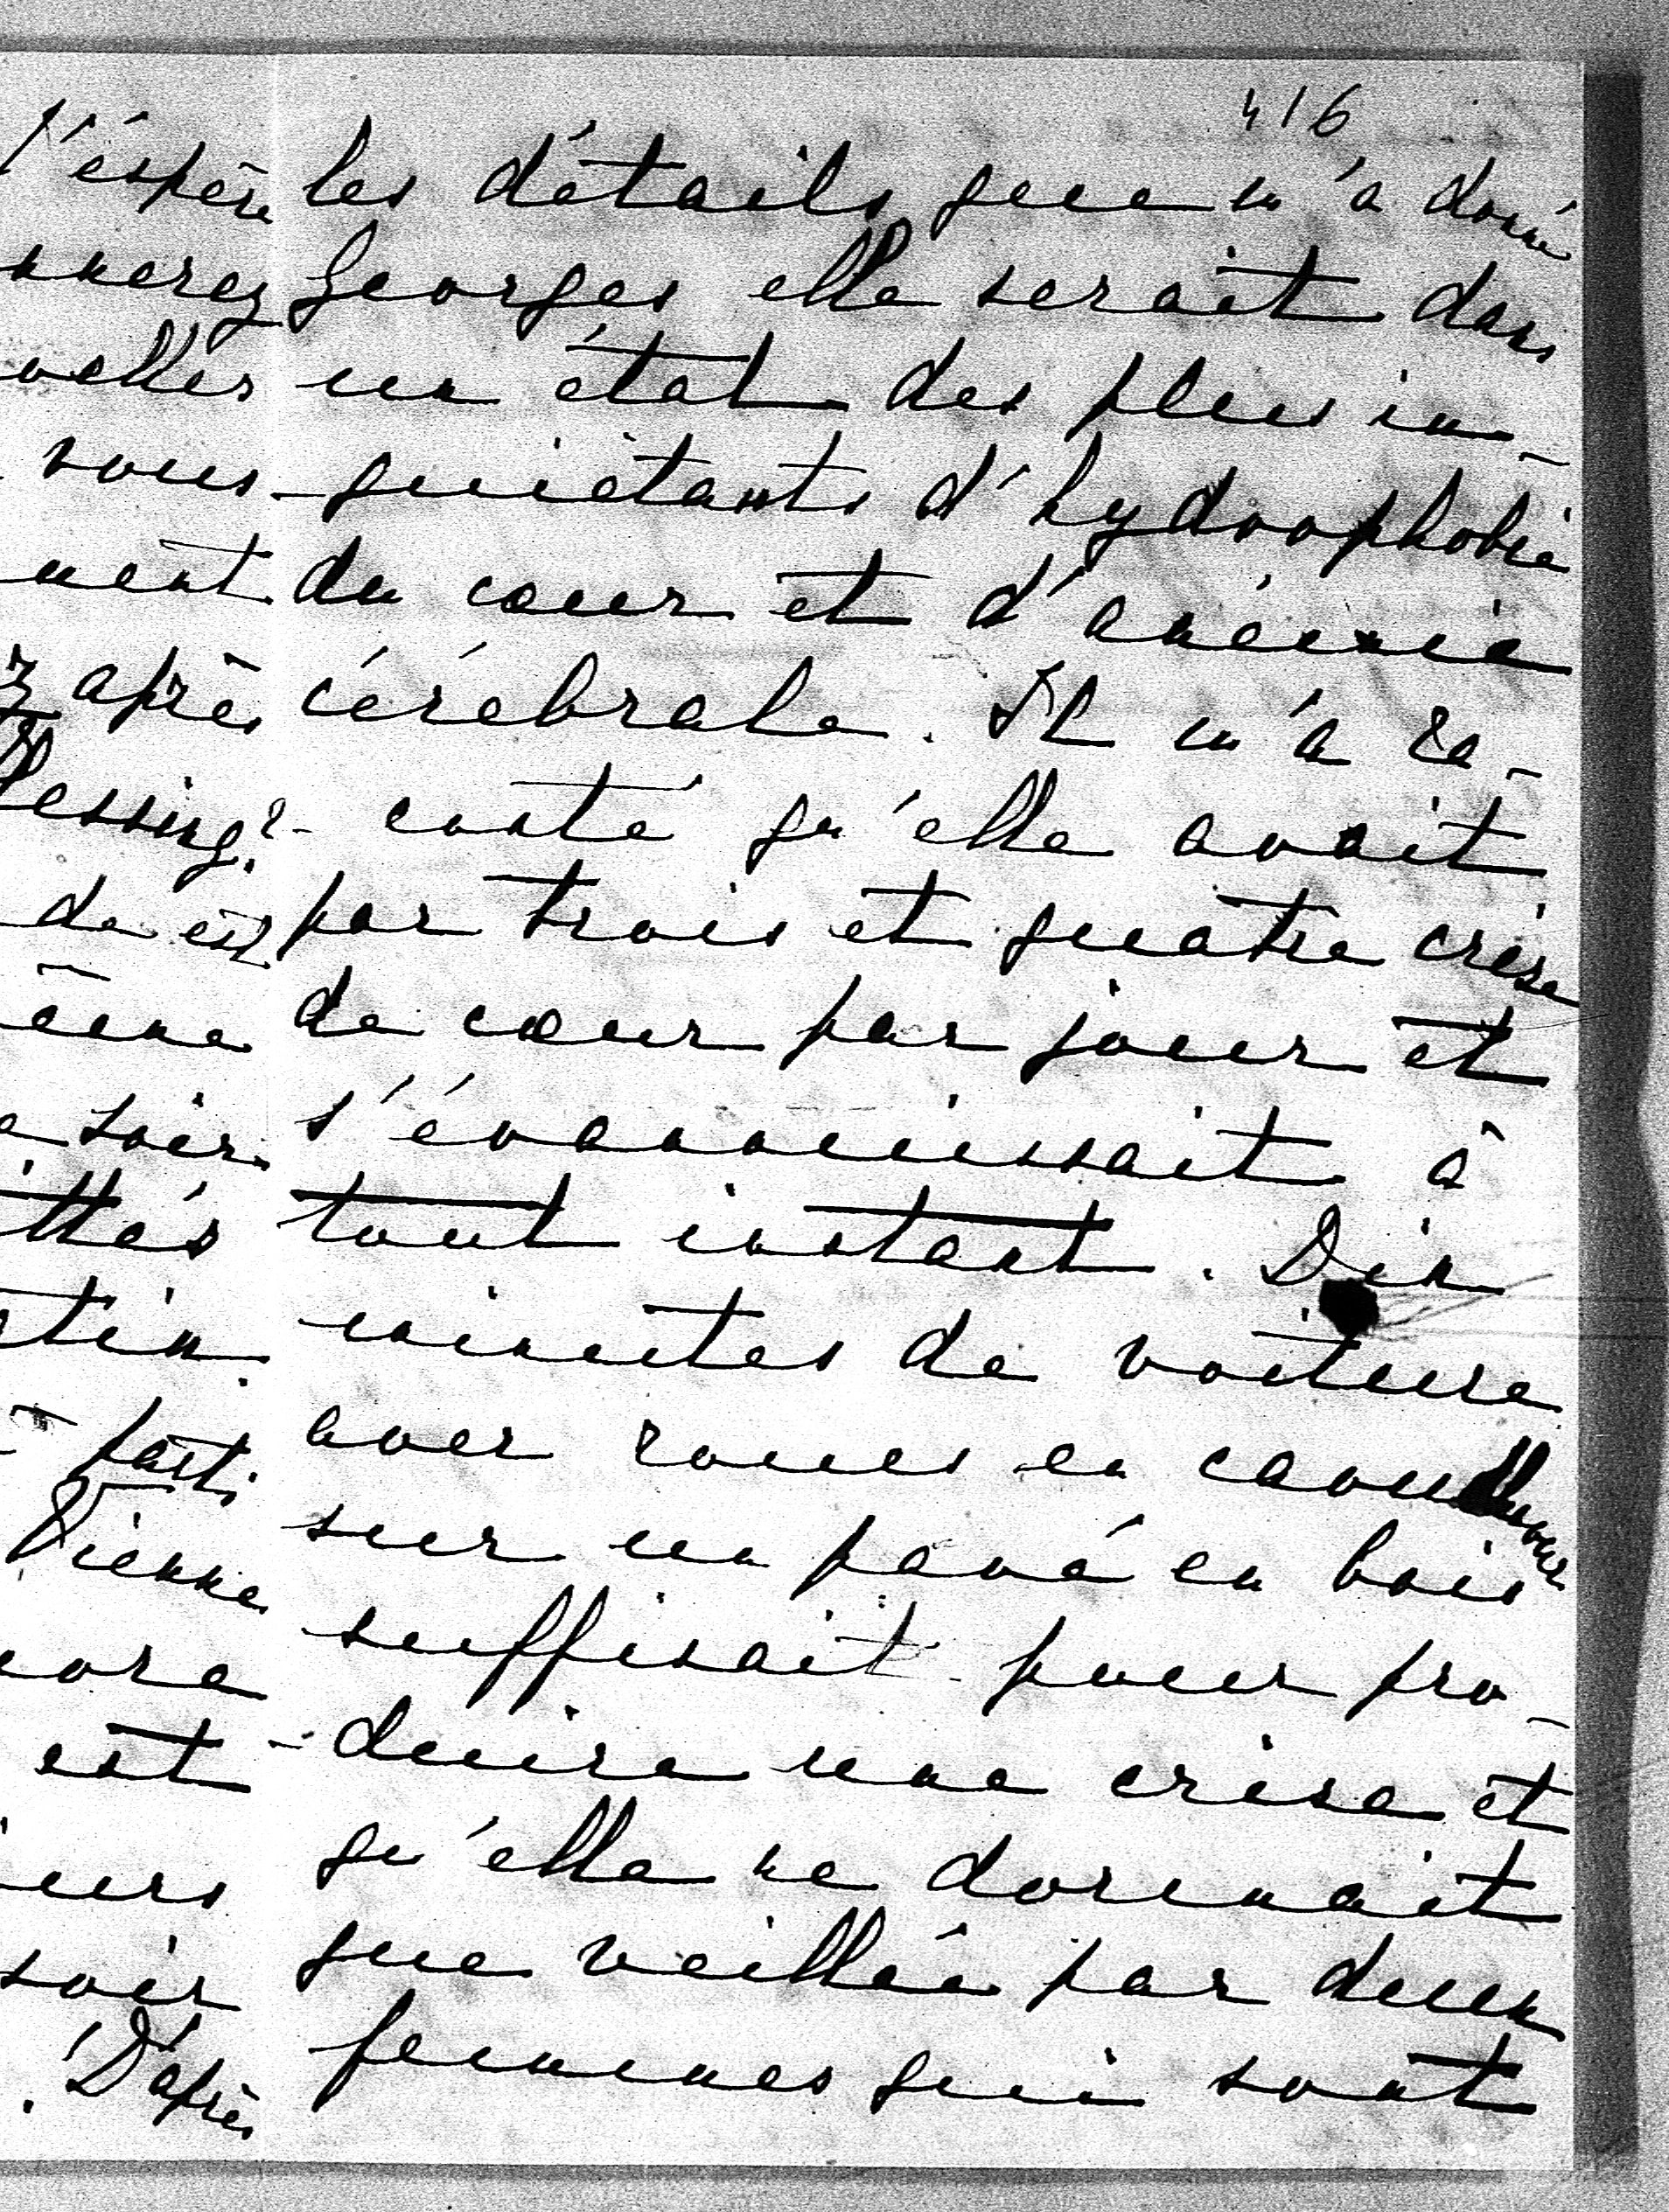 l'éspère
nnerez
velles
vous
ment
z après
lessing?
de est
ême
e soir
ittés
tin.
parti
Vienne
core
est
ieurs
soir
. D'après
416
les détails que m'a donné
Georges elle serait dans
un état des plus in-
-quiétants d'hydrophobie
du cœur et d'anémie
cérébrale. Il m'a ra-
-conté qu'elle avait
par trois et quatre crise
de cœur par jour et
s'évanouissait à
tout instant. Dix
minutes de voiture
avec roues en caoutchouc
sur un pavé en bois
suffisait pour pro-
-duire une crise et
qu'elle ne dormait
que veillée par deux
femmes qui sont